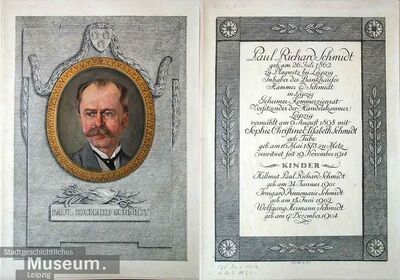 PAUL RICHARD SCHMIDT
Stadtgeschichtliches
Museum.
Leipzig
Paul Richard Schmidt
geb am 26. Juli 1862
zu Plagwitz b/ Leipzig
Inhaber des Bankhauses
Hammer & Schmidt
in Leipzig
Geheimer Kommerzienrat
Vorsitzender der Handelskammer
Leipzig
vermählt am 6. August 1898 mit
Sophie Christine Elisabeth Schmidt
geb.
geb am 16. Mai 1873 zu Metz
verwitwet seit 19. November 1914
KINDER
Hellmut Paul Richard Schmidt
geb am 24. Januar 1901
Irmgard Annemarie Schmidt
geb am 25. Juni 1902
Wolfgang Hermann Schmidt
geb am 17. Dezember 1904